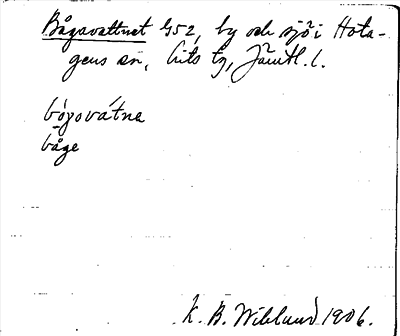 Bågavattnet G52, by och sjö i Hota-
gens sn, Lits tg, Jämtl. l.
bógovátne
båge
K. B. Wiklund 1906.